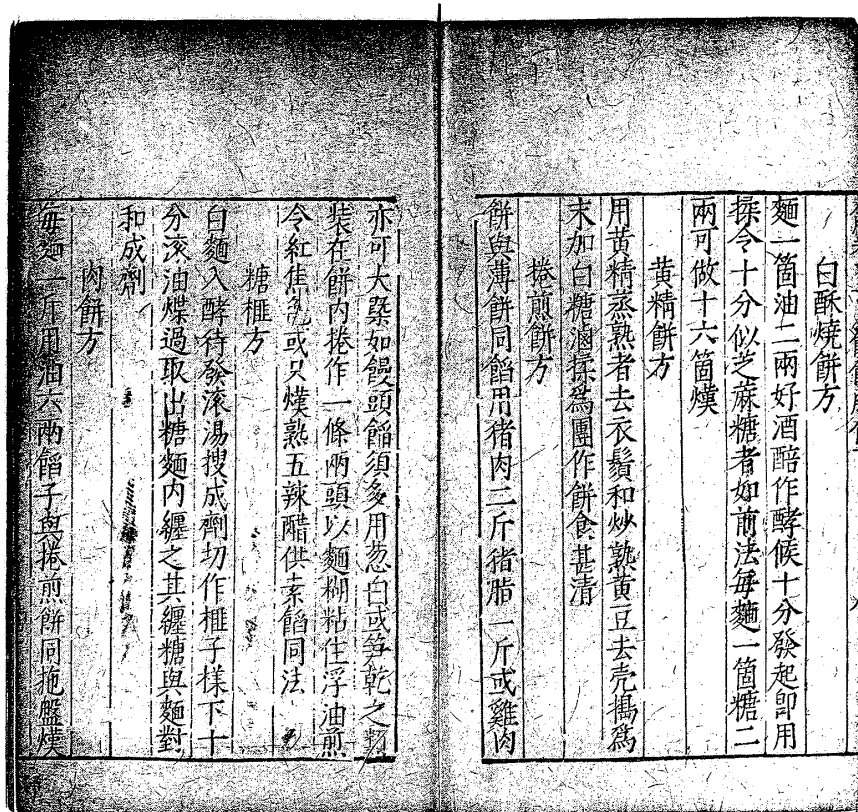 白酥燒餅方
麵一箇油二兩好酒醅作酵候十分發起即用
揉令十分似芝蔴糖者如前法每麵一箇糖二
兩可做十六箇熯
黃精餅方
用黃精蒸熟者去衣鬚和炒熟黃豆去壳搗爲
末加白糖滷揉爲團作餅食甚清
捲煎餅方
餅與薄餅同餡用猪肉二斤猪脂一斤或雞肉
亦可大槩如饅頭餡須多用葱白或笋乾之類
裝在餅內捲作一條兩頭以麵糊粘住浮油煎
令紅焦色或只熯熟五辣醋供素餡同法
糖榧方
白麵入酵待發滚湯搜成劑切作榧子樣下十
分滚油煠過取出糖麵內纏之其纏糖與麵對
和成劑
肉餅方
每麵一斤用油六兩餡子與捲煎餅同拖盤熯